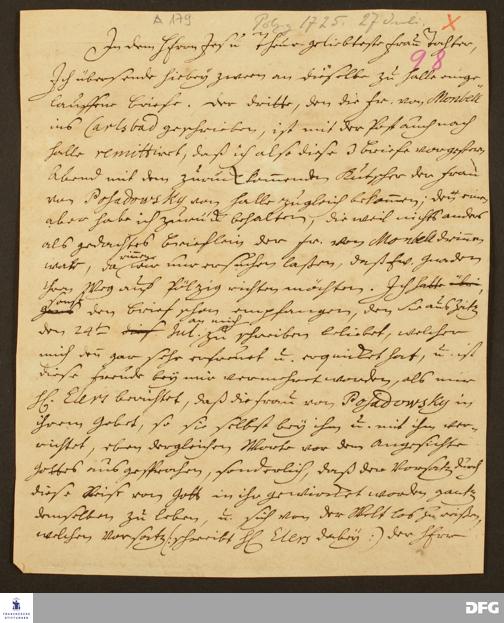 A 179
Polzig 1725. 27 Juli.
98
In dem Herrn Jesu theur geliebteste Frau Tochter,
Ich übersende hiebey zween an dieselbe zu Halle einge-
lauffene briefe. Der dritte, den die fr. von Monbell
ins Carlsbad geschrieben, ist mit der Post auch nach
Halle remittiret, daß ich also diese 3 briefe vorgestern
Abend mit dem zurück kommenden Kutscher der Frau
von Posadowsky von Halle zugleich bekommen; den einen
aber habe ich zurück behalten, die weil nichts anders
als gedachtes brieflein der fr. von Monbell drinnen
war, da
nur ersuchen laßen, daß Ew. Gnaden
ihren Weg auf Pölzig richten möchten. Ich
den brief schon empfangen, den Sie aus
den 24ten Jul. an mich zu schreiben beliebet, welcher
mich den gar sehr erfreuet u. erquicket hat, u. ist
diese freude bey mir vermehret worden, als mir
H. Elers berichtet, daß die Frau von Posadowsky in
ihrem Gebet, so sie selbst bey ihm u. mit ihm ver-
richtet, eben dergleichen Worte vor dem Angesichte
Gottes ausgesprochen, sonderlich, daß der Vorsatz durch
diese Reise von Gott in ihr gewircket worden gantz
demselben zu leben, u. sich von der Welt los zu reißen,
welchen Vorsatz (: schreibt H. Elers dabey :) der Herr
FRANCKESCHE
STIFTUNGEN
DFG